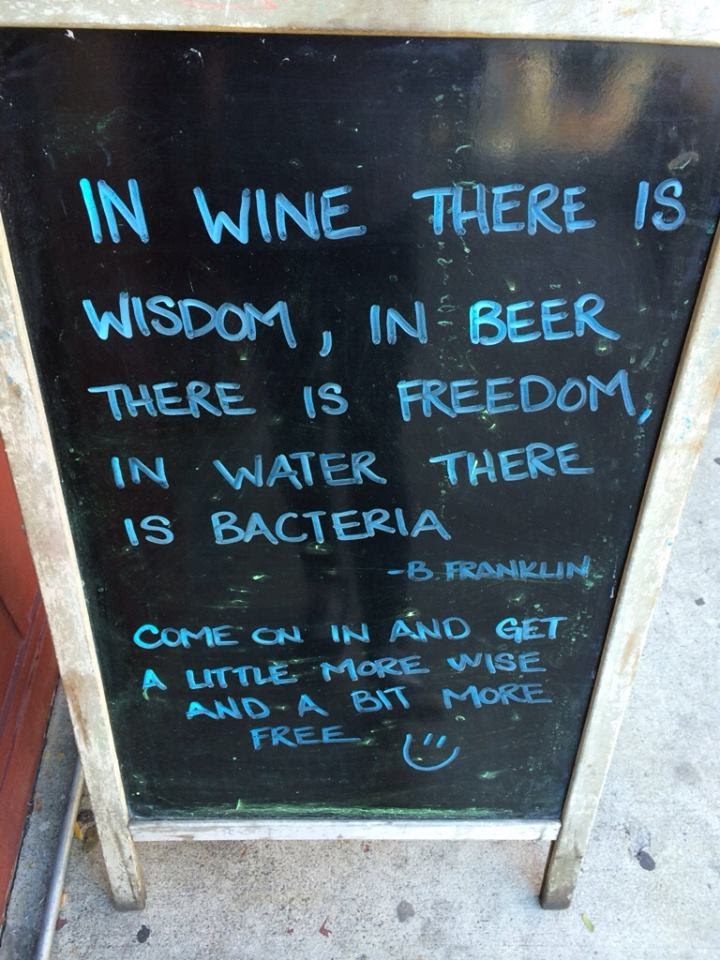 IN WINE THERE IS
WISDOM, IN BEER
THERE IS FREEDOM,
IN WATER THERE
IS BACTERIA
-B. FRANKLIN
COME ON IN AND GET
A LITTLE MORE WISE
AND A BIT MORE
FREE